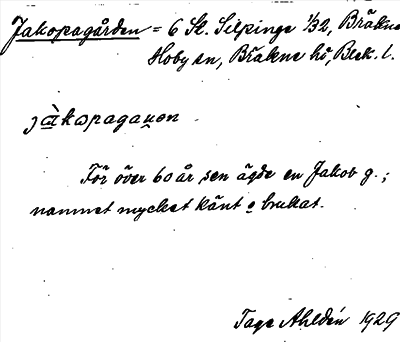 Jakopagården = 6 St. Silpinge 1/32, Bräkne
Hoby sn, Bräkne hd, Blek. l.
jàkopagaṷen
För över 60 år sen ägde en Jakob g.;
namnet mycket känt o brukat.
Tage Ahldén 1929